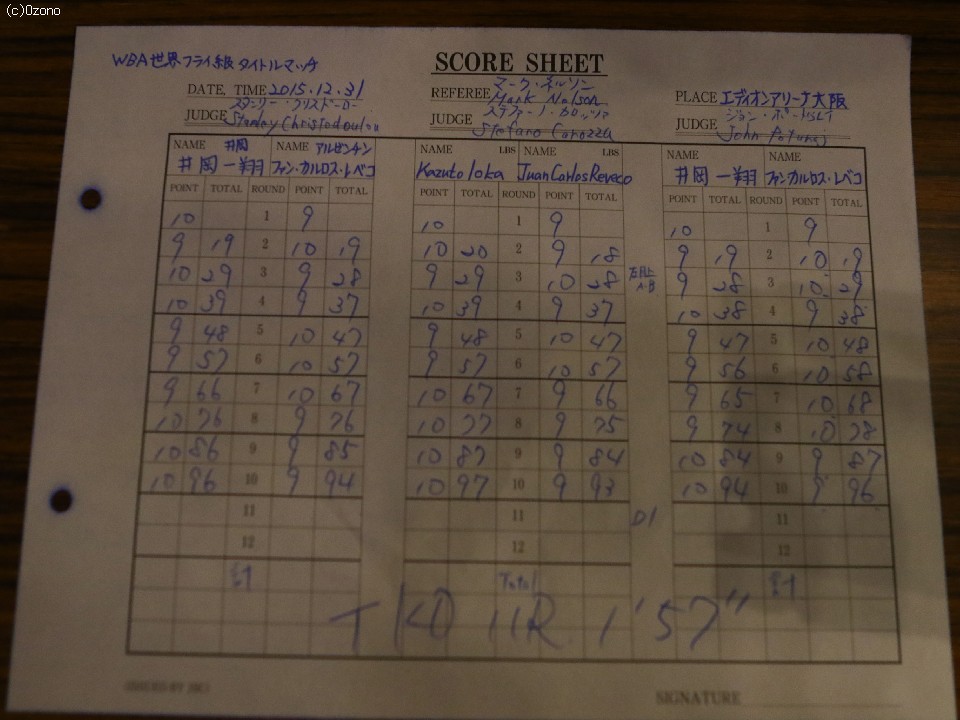 (c)Ozono
WBA世界フライ級タイトルマッチ
SCORE SHEET
DATE, TIME 2015.12.31
REFEREE マーク・ネルソン
Mark Nelson
PLACE エディオンアリーナ大阪
JUDGE スタンリー・クリストドーロー
Stanley Christodoulou
JUDGE ステファーノ・カロッツァ
Stefano Carozza
JUDGE ジョン・ポートゥライ
John Poturaj
NAME 井岡 NAME アルゼンチン
井岡一翔 ファン・カルロス・レベコ
NAME LBS NAME LBS
Kazuto Ioka Juan Carlos Reveco
NAME NAME
井岡一翔 ファンカルロス・レベコ
POINT TOTAL ROUND POINT TOTAL POINT TOTAL ROUND POINT TOTAL POINT TOTAL ROUND POINT TOTAL
10 1 9 10 1 9 10 1 9
9 19 2 10 19 10 20 2 9 18 9 19 2 10 19
10 29 3 9 28 9 29 3 10 28 9 28 3 10 29
10 39 4 9 37 10 39 4 9 37 10 38 4 9 38
9 48 5 10 47 9 48 5 10 47 9 47 5 10 48
9 57 6 10 57 9 57 6 10 57 9 56 6 10 58
9 66 7 10 67 10 67 7 9 66 9 65 7 10 68
10 76 8 9 76 10 77 8 9 75 9 74 8 10 78
10 86 9 9 85 10 87 9 9 84 10 84 9 9 87
10 96 10 9 94 10 97 10 9 93 10 94 10 9 96
11 11 D1 11
12 12 12
計 Total 計
TKO 11R 1'57"
ISSUED BY JBC
SIGNATURE